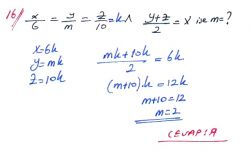 16) x/6 = y/m = z/10 = k (y+z)/2 = x ise m = ?
x=6k
y=mk
z=10k
(mk+10k)/2 = 6k
(m+10)k = 12k
m+10=12
m=2
CEVAP: A